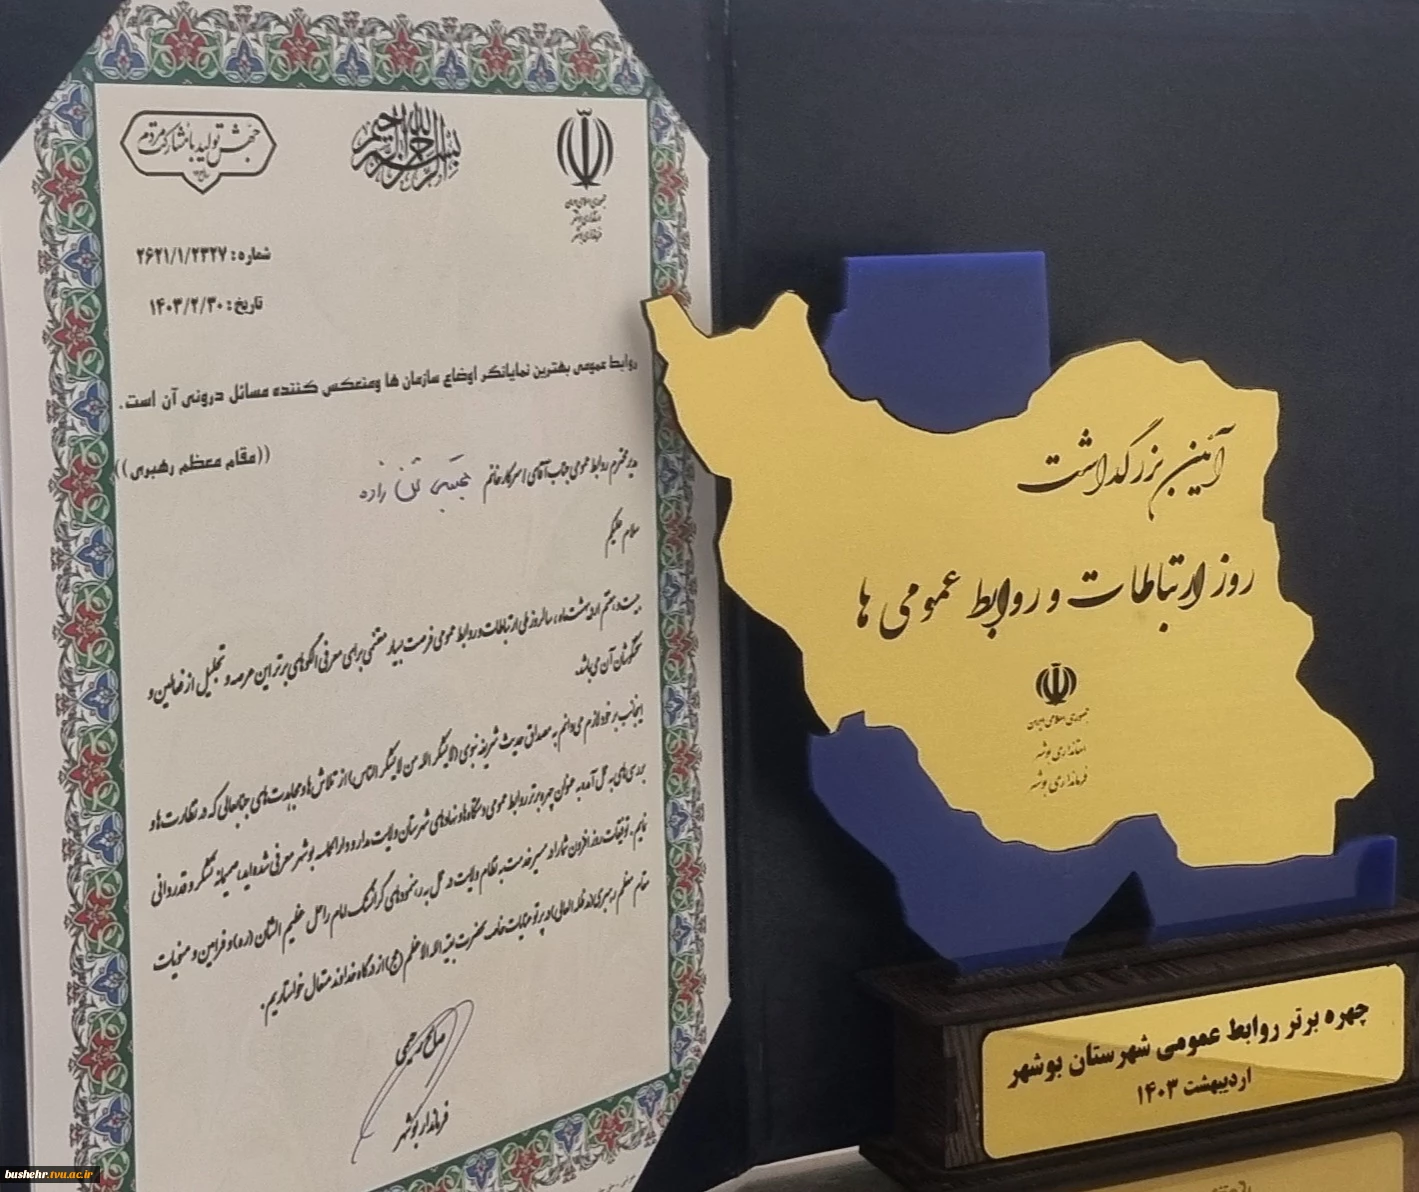 جهش تولید با مشارکت مردم
بسم الله الرحمن الرحیم
جمهوری اسلامی ایران
استانداری بوشهر
فرمانداری بوشهر
شماره : ۲۶۲۱/۱/۲۳۲۷
تاریخ : ۱۴۰۳/۲/۳۰
روابط عمومی بهترین نمایانگر اوضاع سازمان ها ومنعکس کننده مسائل درونی آن است.
((مقام معظم رهبری))
مدیر محترم روابط عمومی جناب آقای / سرکار خانم
سلام علیکم
بیست و هفتم اردیبهشت ماه ، سالروز ملی ارتباطات و روابط عمومی فرصت بسیار مغتنمی برای معرفی الگوهای برتر این عرصه و تجلیل از فعالین و
تلاشگران آن می باشد.
اینجانب بر خود لازم می دانم به مصداق حدیث شریف نبوی (لایشکر الله من لایشکر الناس) از تلاش ها و مجاهدت های جنابعالی که در نظارت ها و
بررسی های به عمل آمده به عنوان چهره برتر روابط عمومی دستگاه ها و نهادهای شهرستان ولایت مدار و دارالحکمه بوشهر معرفی شده اید، صمیمانه تشکر و قدردانی
نمایم. توفیقات روز افزون شما را در مسیر خدمت به نظام ولایت در عمل به رهنمودهای گرانسنگ امام راحل عظیم الشان (ره) و فرامین و منویات
مقام معظم رهبری (مد ظله العالی) در پرتو عنایات خاصه حضرت بقیة الله الاعظم (عج) از درگاه خداوند متعال خواستاریم.
صالح رحیمی
فرماندار بوشهر
آئین بزرگداشت
روز ارتباطات و روابط عمومی ها
جمهوری اسلامی ایران
استانداری بوشهر
فرمانداری بوشهر
چهره برتر روابط عمومی شهرستان بوشهر
اردیبهشت ۱۴۰۳
bushehr.tvu.ac.ir